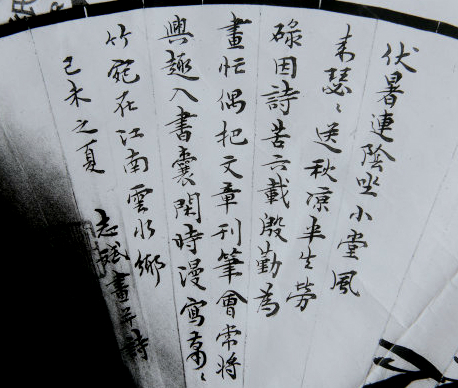 伏暑連陰坐小堂風
来瑟〻送秋凉半生勞
碌因詩苦六載殷勤為
畫忙偶把文章刊筆會常將
興趣入書囊閑時漫寫蕭〻
竹宛在江南雲水鄉
己未之夏
志斌畫并詩